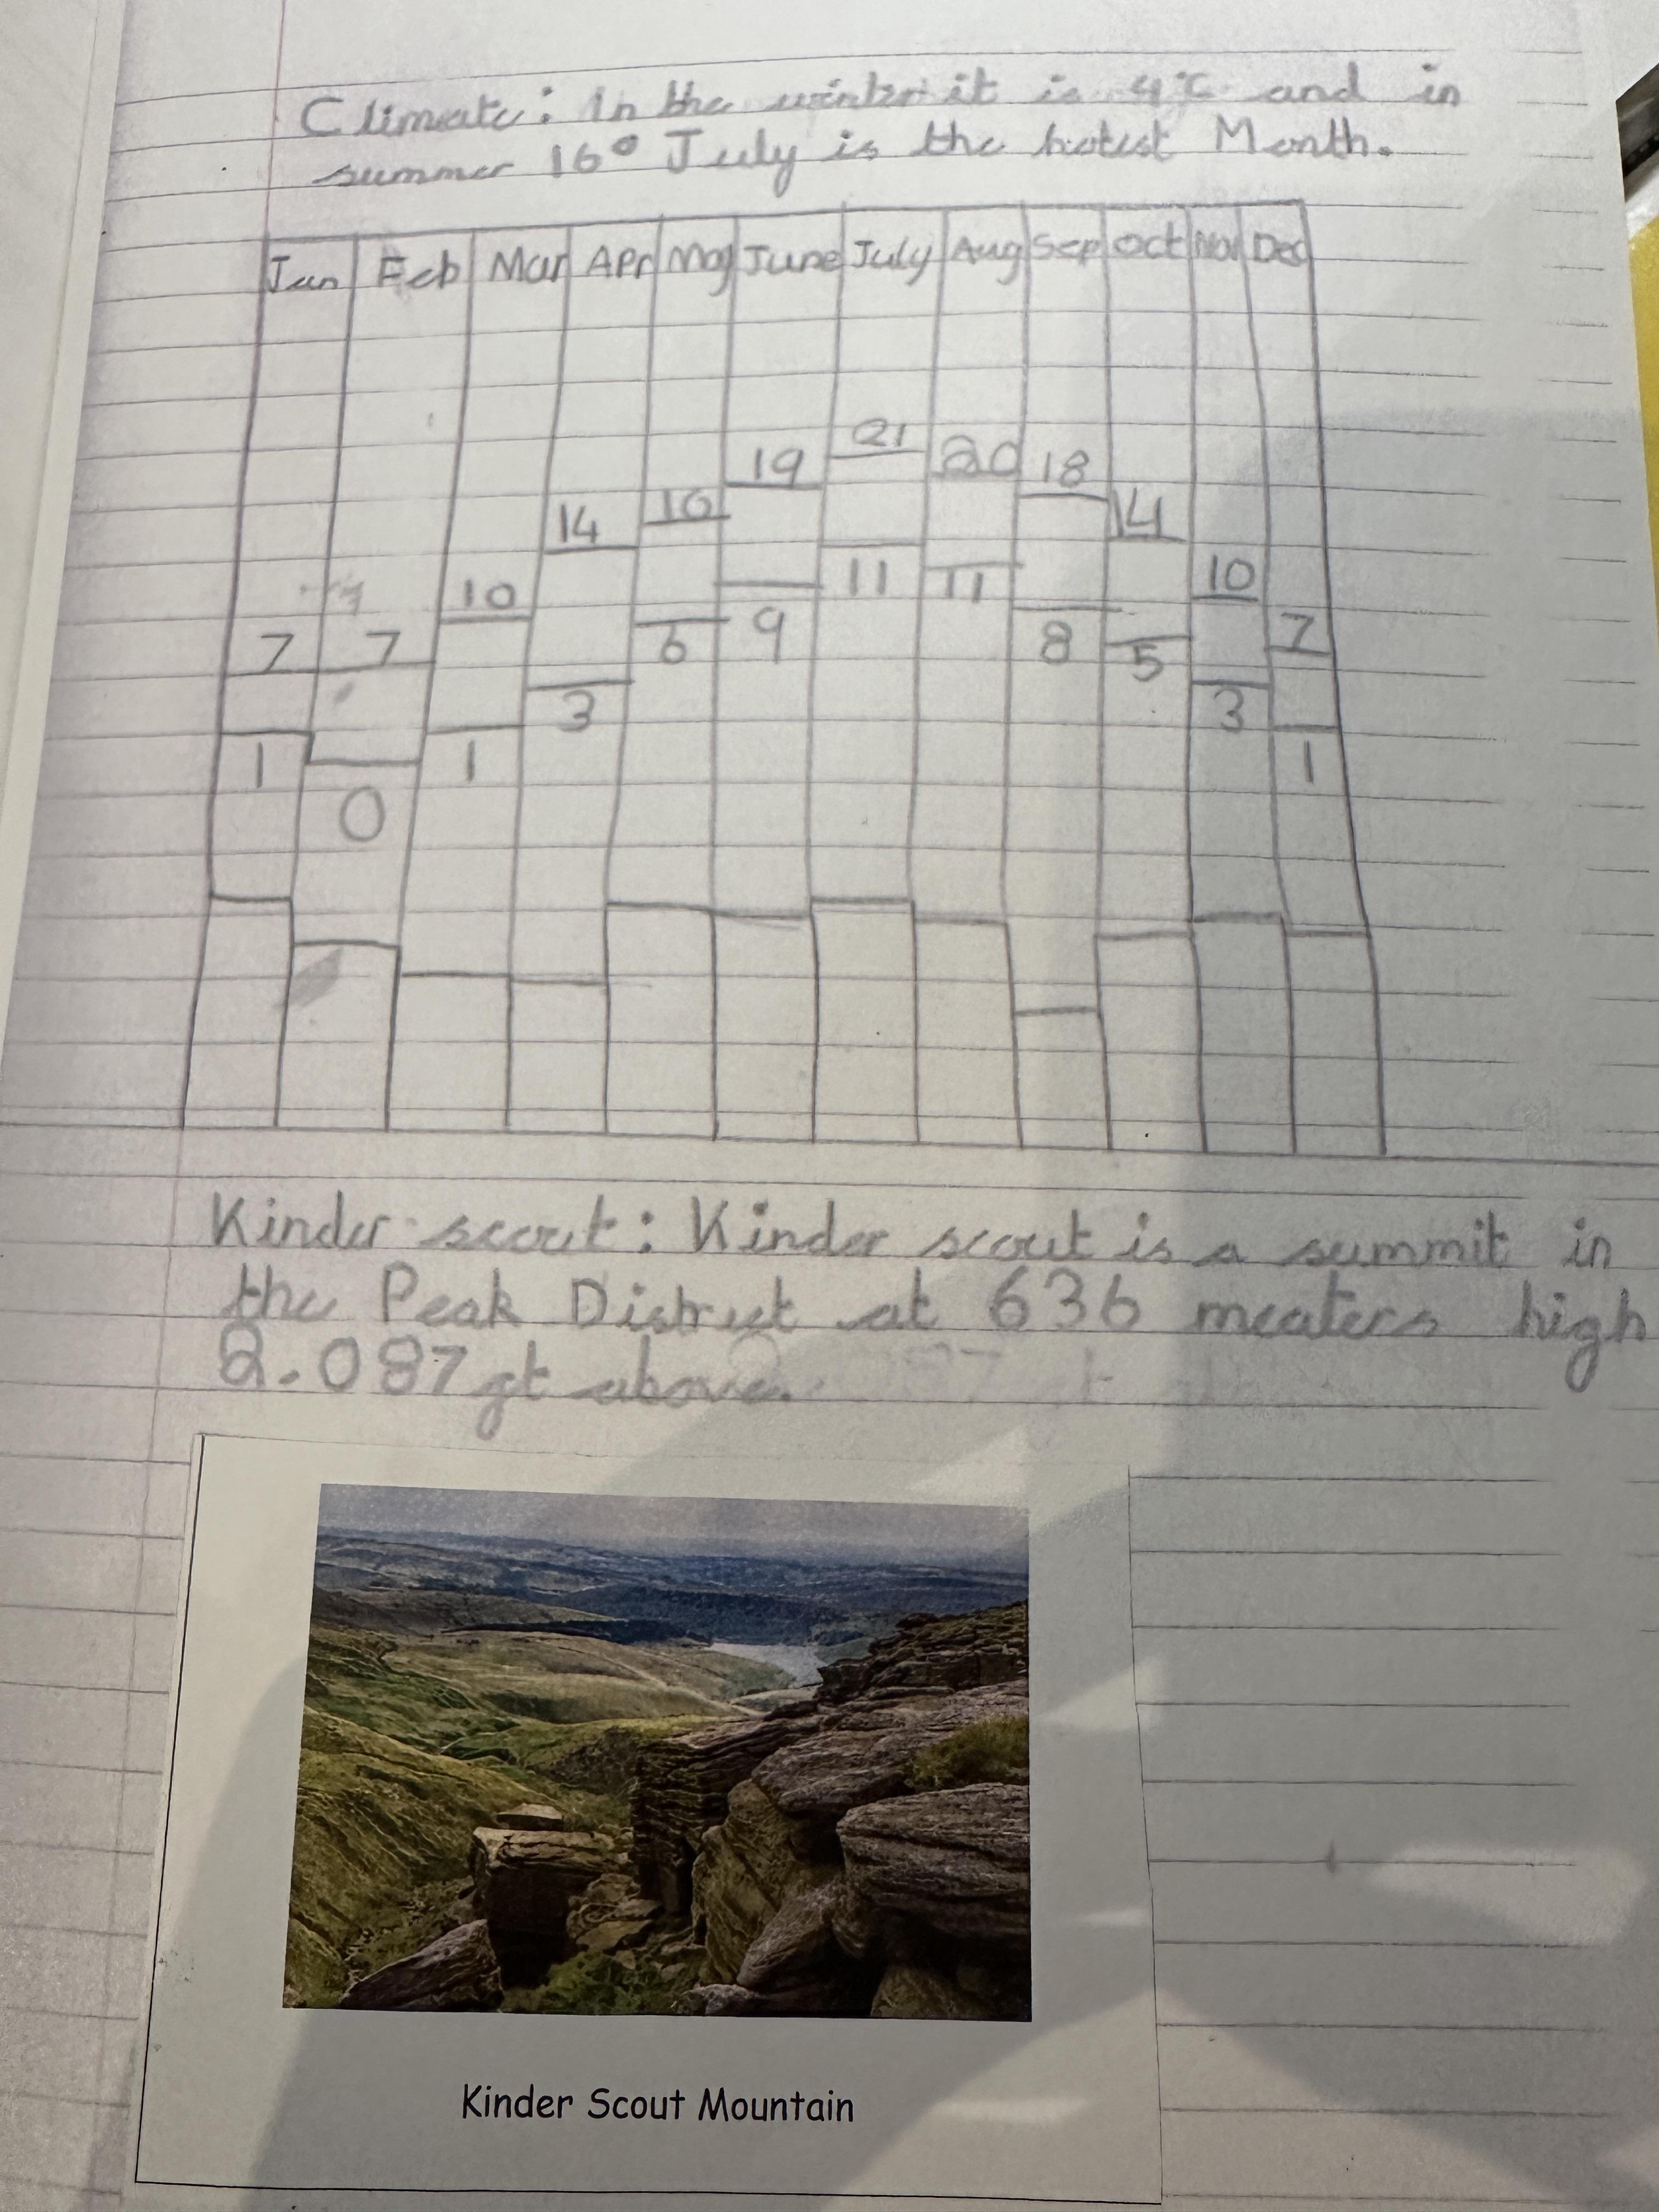 Climate: In the winter it is 4°C and in
summer 16° July is the hotest Month.
Jan Feb Mar Apr May June July Aug Sep Oct Nov Dec
21
19 20 18
14 16 14
10 11 11 10
7 7 6 9 8 5 7
3 3
1 0 1 1
Kinder scout: Kinder scout is a summit in
the Peak District at 636 meaters high
2.087 gt above.
Kinder Scout Mountain